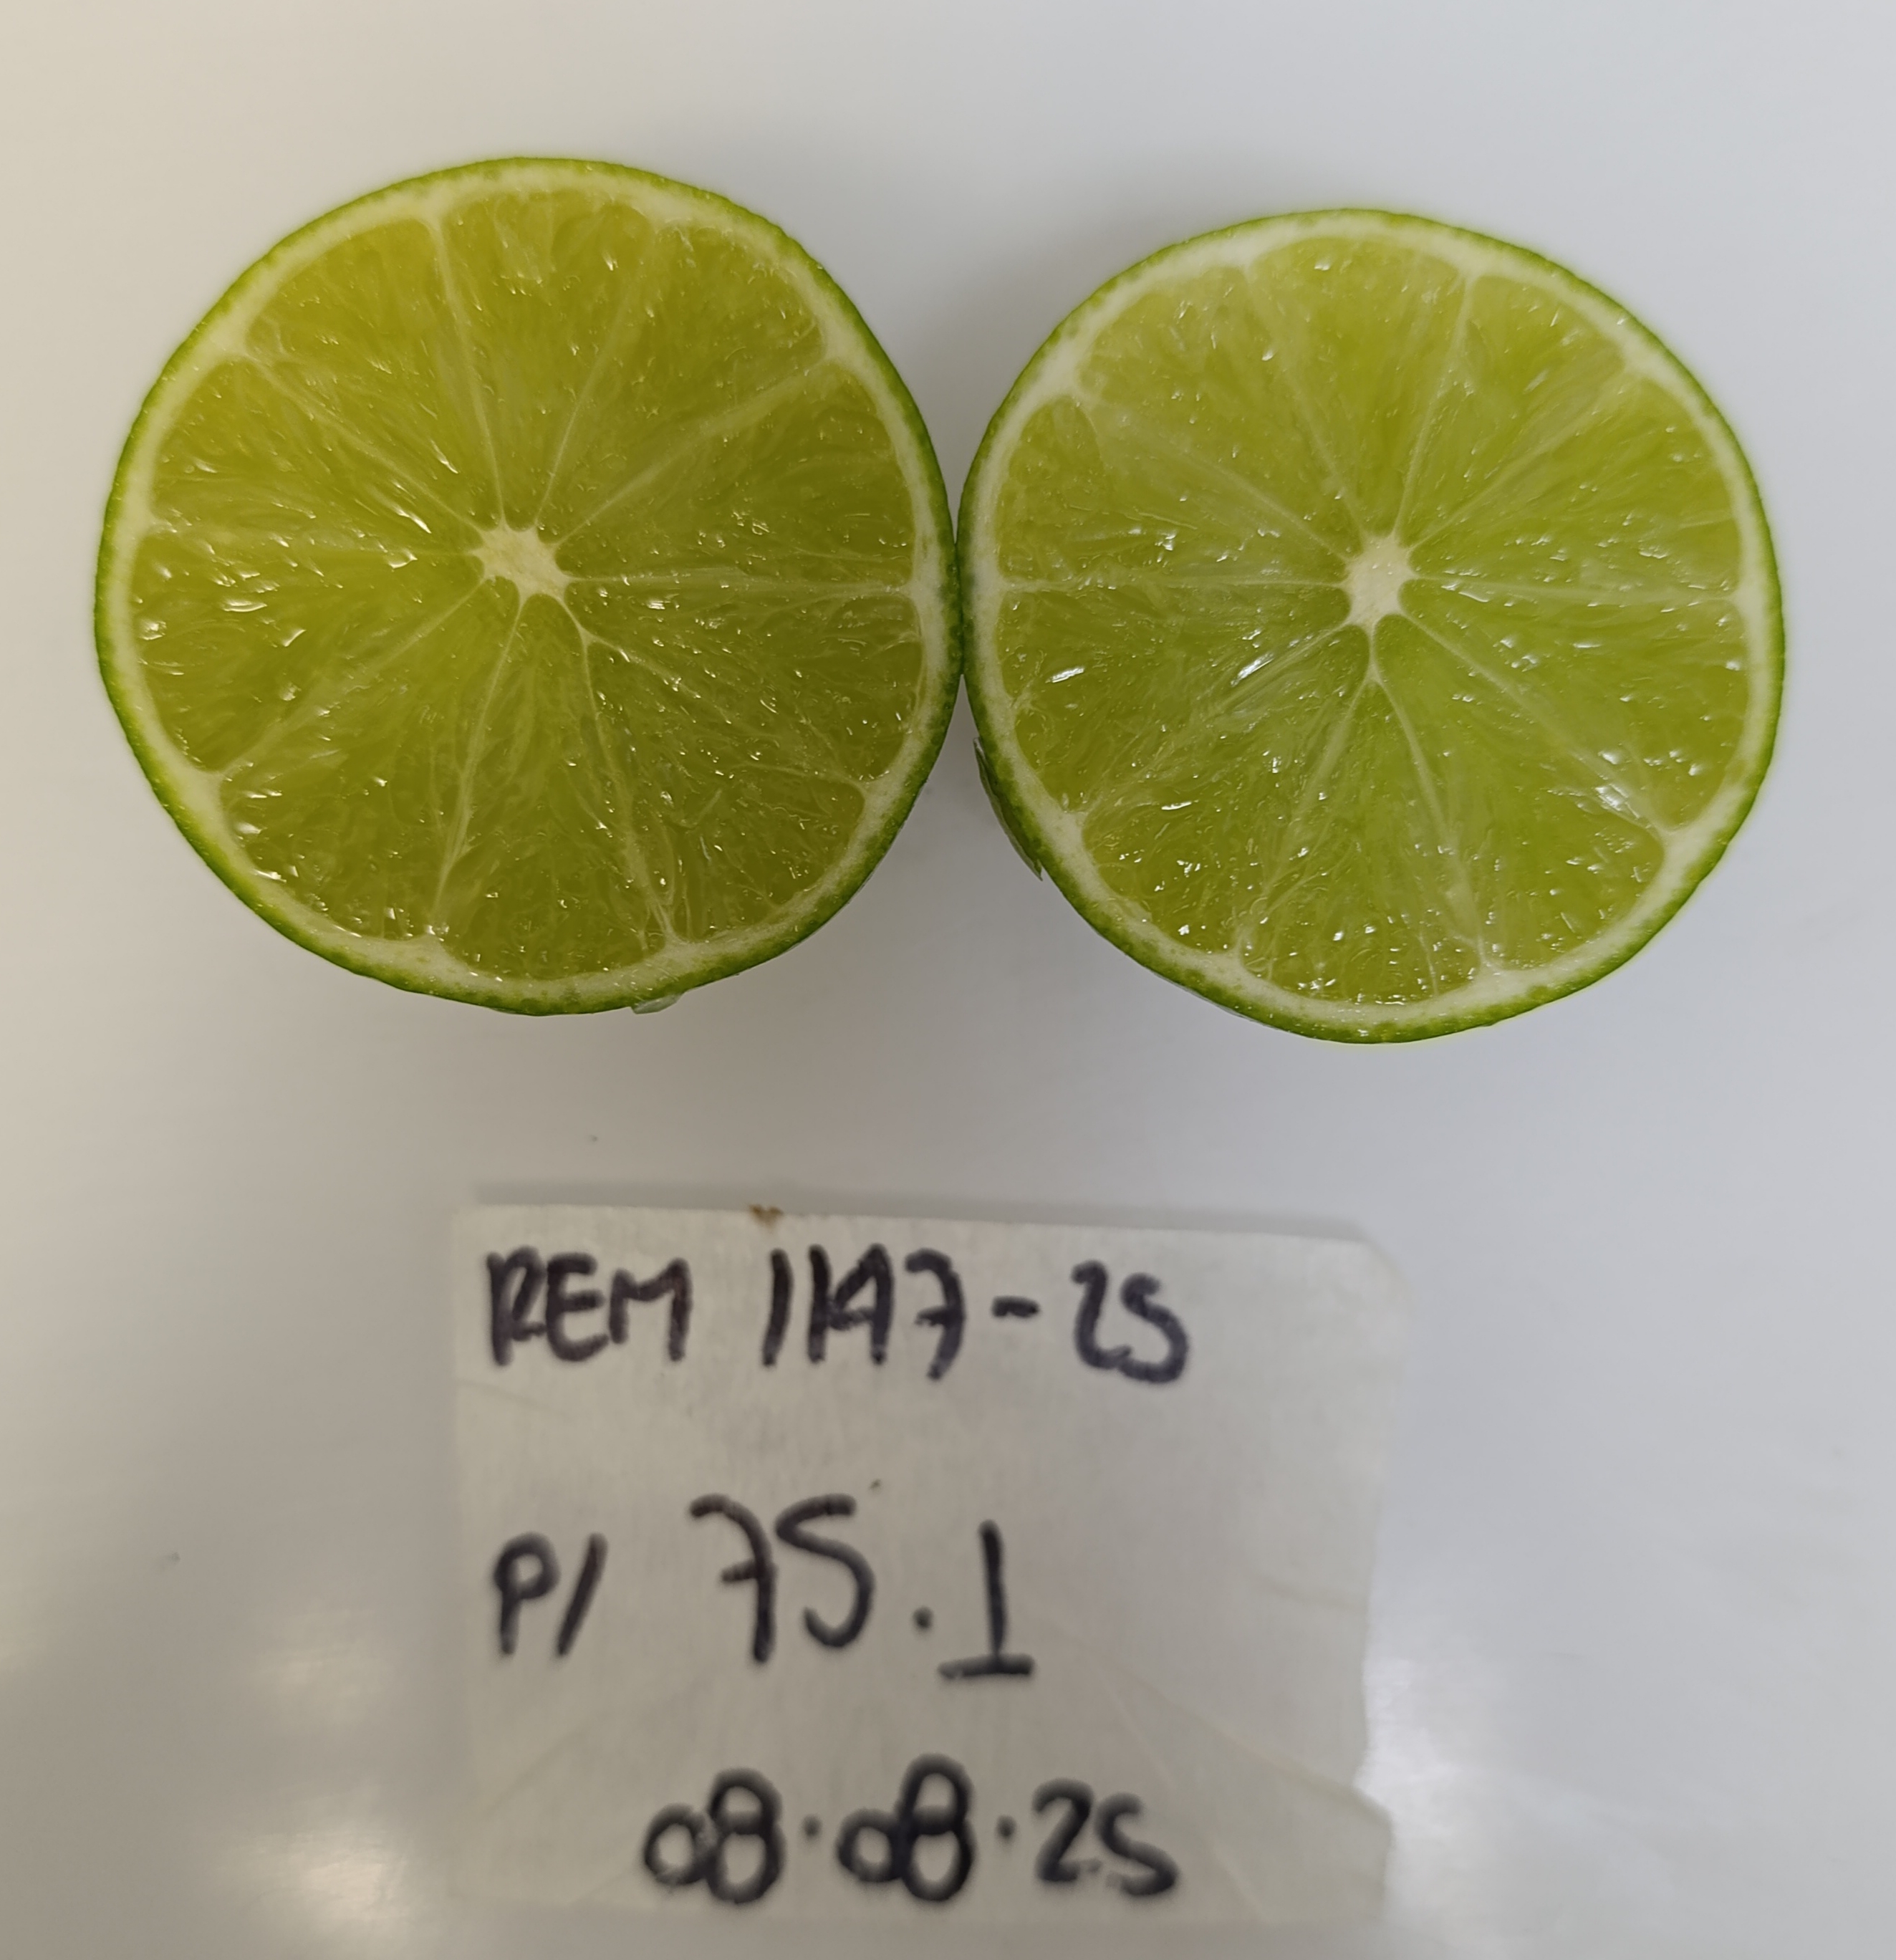 REM 1147-25
P/ 75.1
08.08.25